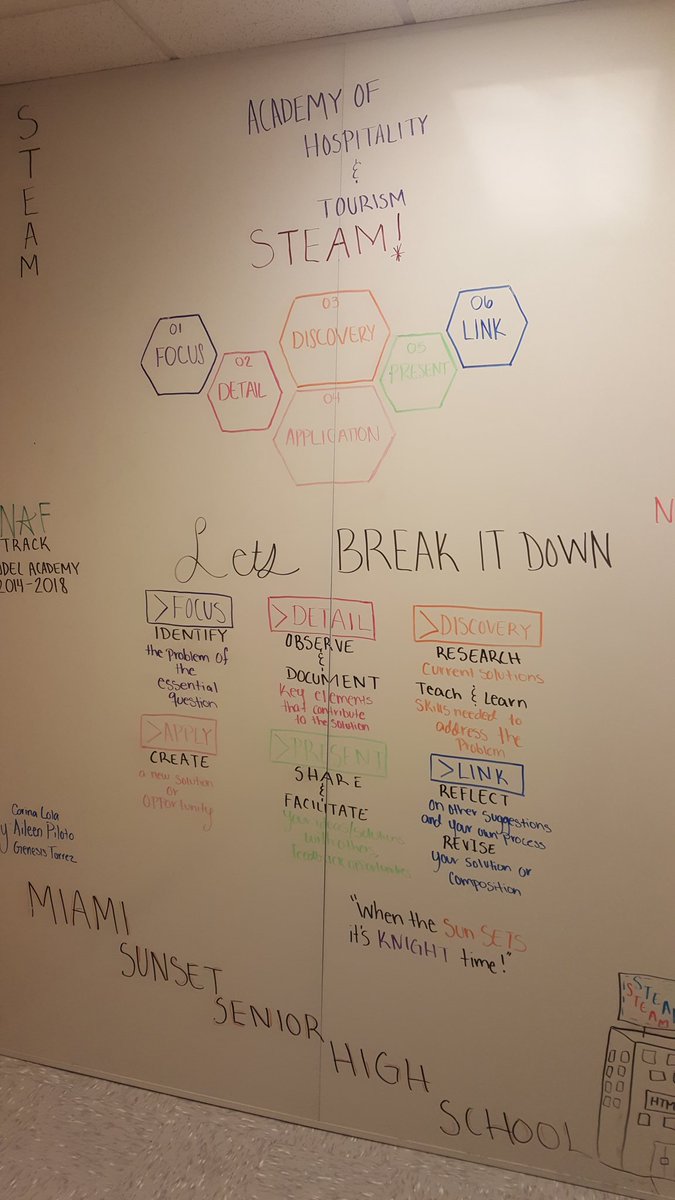 STEAM
ACADEMY OF
HOSPITALITY
&
TOURISM
STEAM!
01
FOCUS
02
DETAIL
03
DISCOVERY
04
APPLICATION
05
PRESENT
06
LINK
NAF
TRACK
DEL ACADEMY
2014-2018
N
Lets BREAK IT DOWN
>FOCUS
IDENTIFY
the problem of
the
essential
question
>DETAIL
OBSERVE
&
DOCUMENT
key elements
that contribute
to the solution
>DISCOVERY
RESEARCH
Current solutions
Teach & Learn
Skills needed to
address the
Problem
>APPLY
CREATE
a new solution
or
opportunity
>PRESENT
SHARE
&
FACILITATE
your ideas/solutions
with others,
>LINK
REFLECT
on other suggestions
and your own process
REVISE
your solution or
composition
Carina Lola
y Aileen Piloto
Genesis Torrez
"When the Sun SETS
it's KNIGHT time!"
MIAMI
SUNSET
SENIOR
HIGH
SCHOOL
STEA
STEAM
HTM